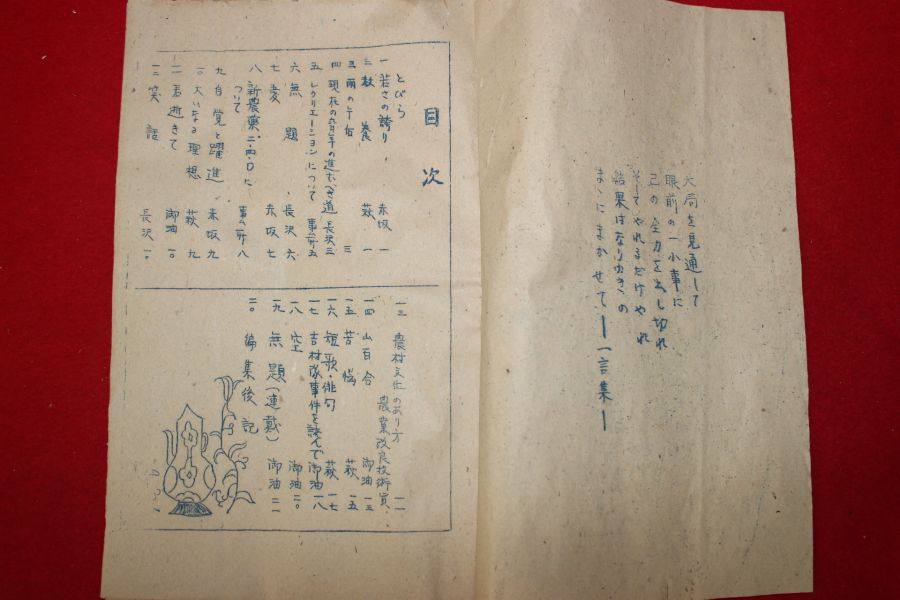 大局を見通して
眼前の一小事に
己の全力を出し切れ
そしてやれるだけやれ
結果はなりゆきの
まゝにまかせて ー一言集ー
目次
とびら
一 若さの誇り 赤坂 一
二 敬農 萩 一
三 雨の午后 三
四 現在の青年の進むべき道 長沢 三
五 レクリエーションについて 事ム所 五
六 無題 長沢 六
七 麦 赤坂 七
八 新農薬二・四・Dに
ついて 事ム所 八
九 自覚と躍進 赤坂 九
一〇 大いなる理想 萩 九
一一 君逝きて 御油 一〇
一二 笑話 長沢 一〇
一三 農村文化のあり方
農業改良技術員 一一
一四 山百合 御油 一三
一五 苦悩 萩 一五
一六 短歌・俳句 萩 一七
一七 吉村隊事件を読んで 御油 一八
一八 空 御油 二〇
一九 無題(連載) 御油 二一
二〇 編集後記